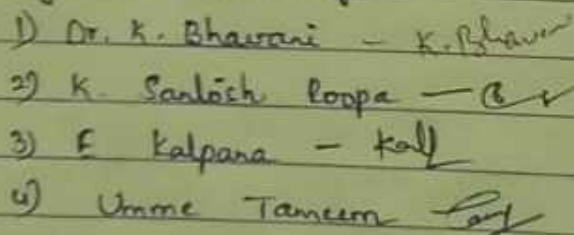 1) Dr. K. Bhavani - K. Bhavani
2) K. Santosh Roopa -
3) E Kalpana - Kall
4) Umme Tameem